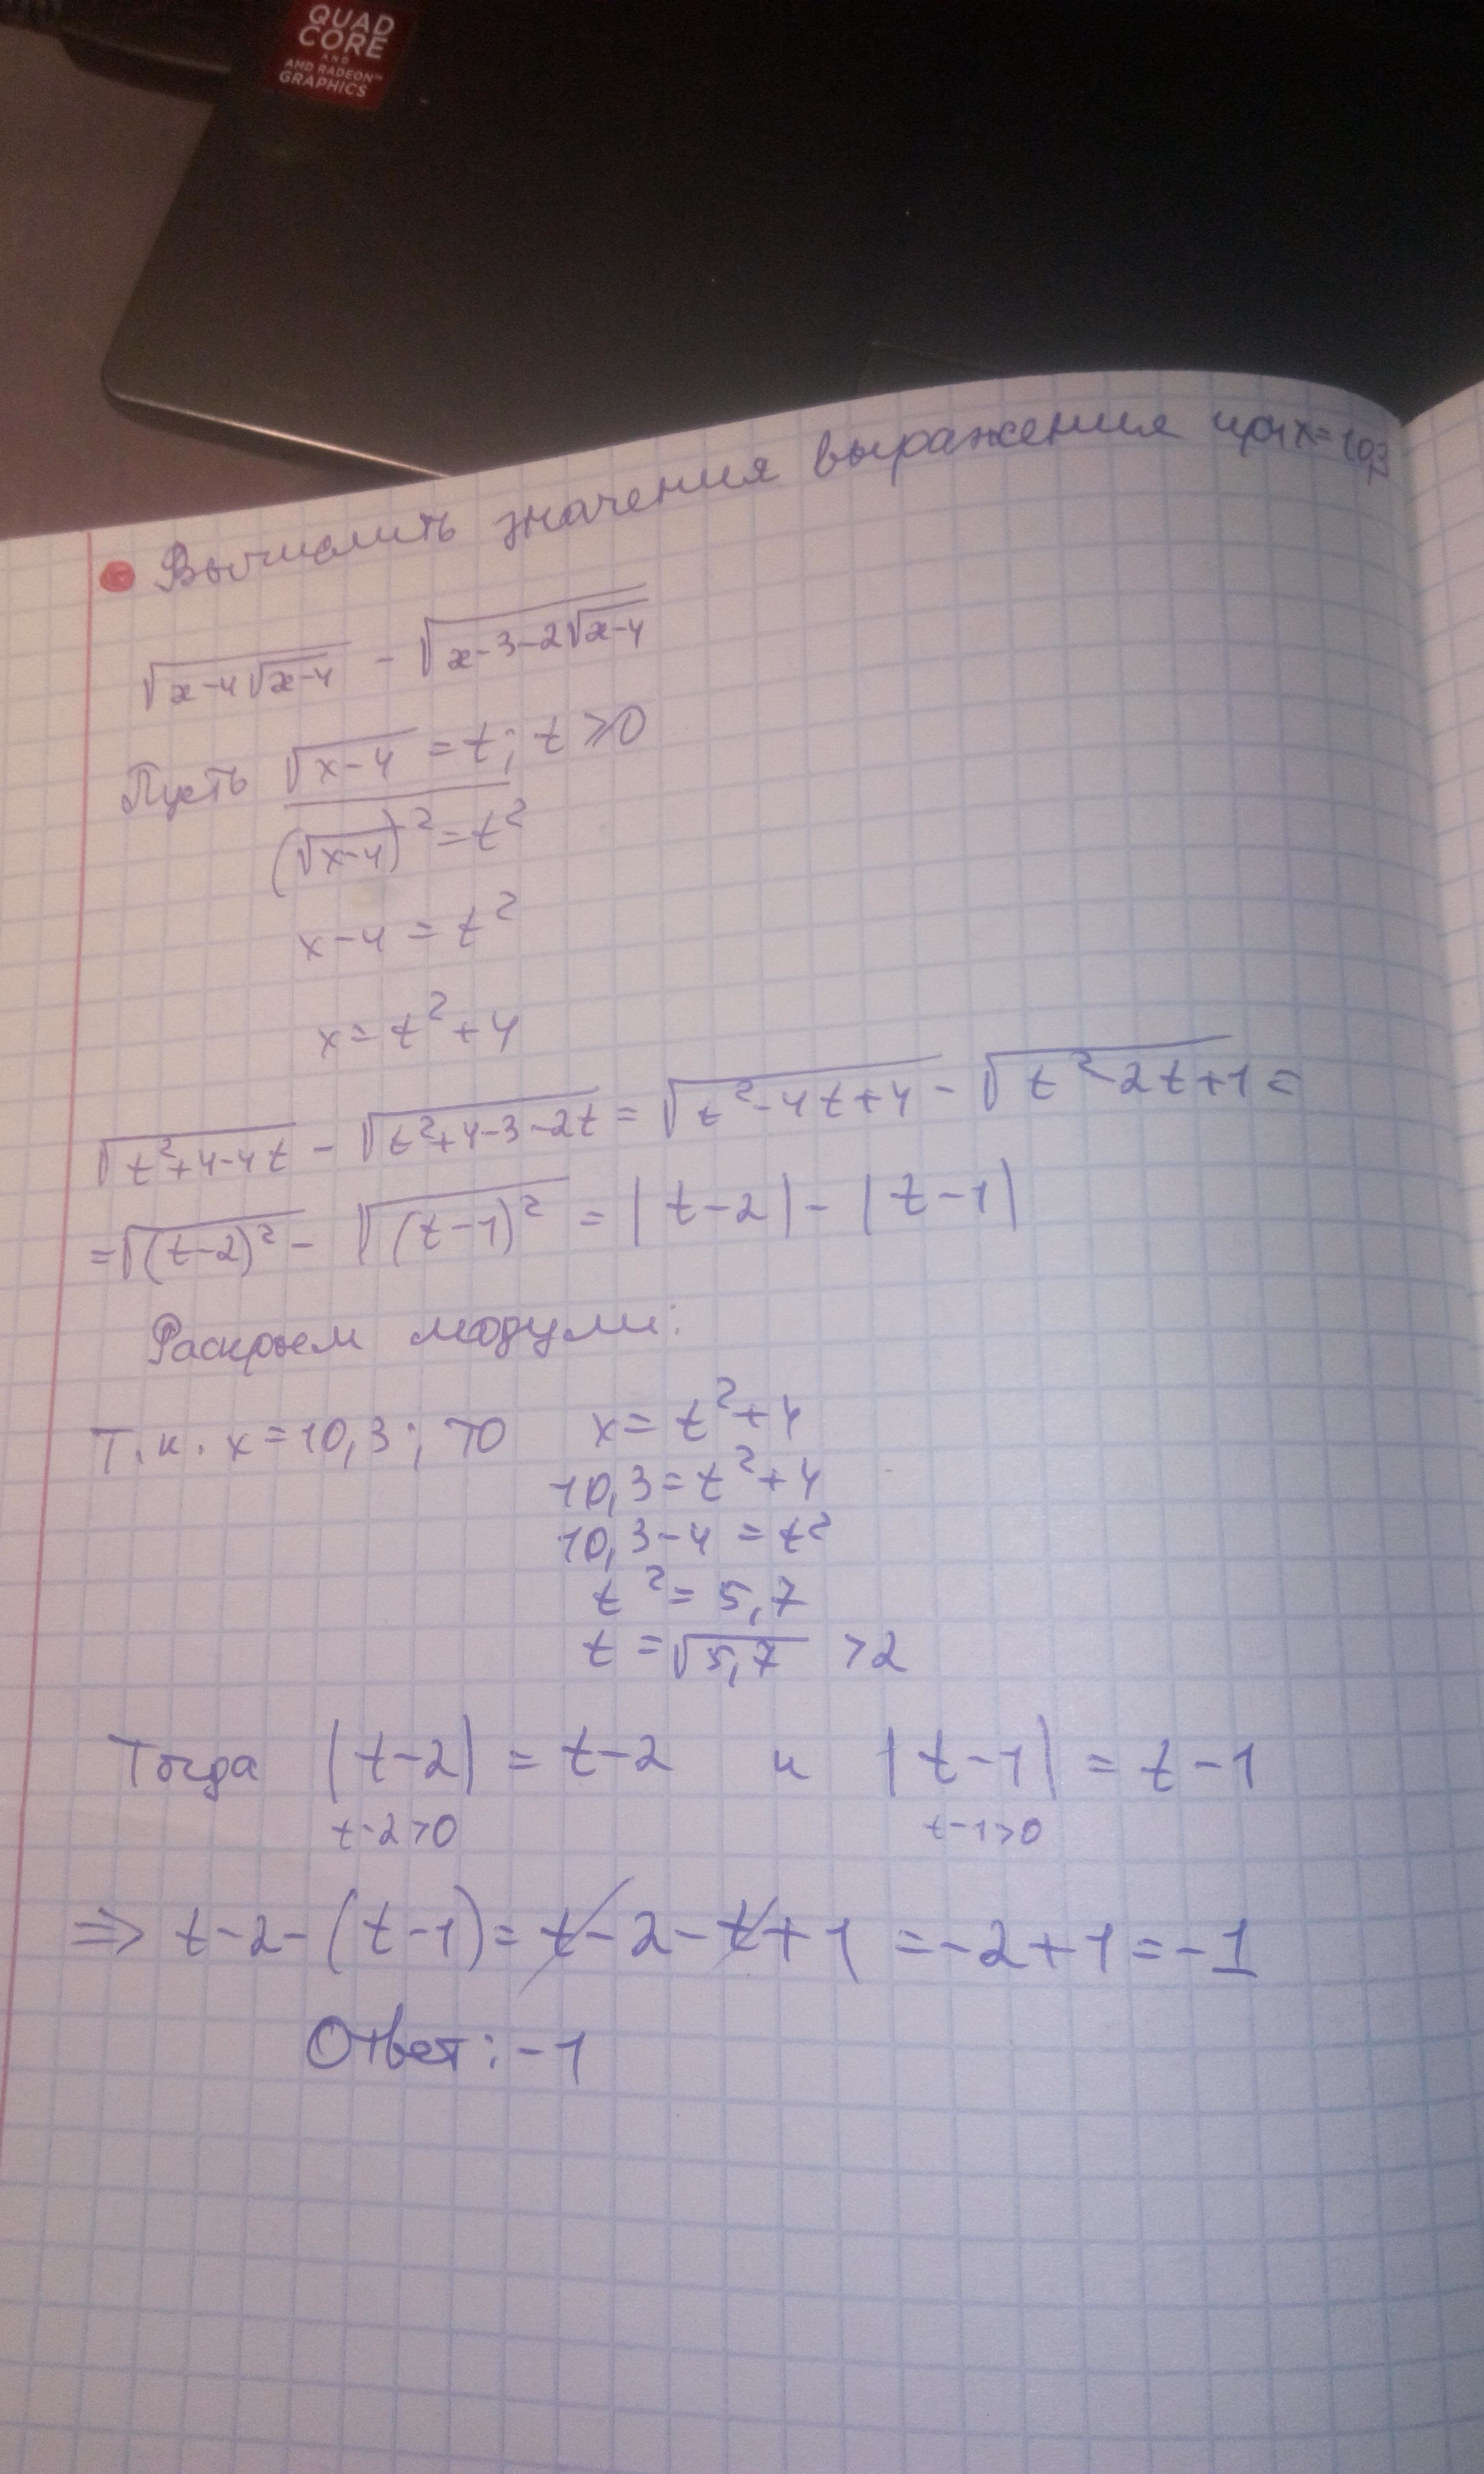 QUAD
CORE
AND
AMD RADEON™
GRAPHICS
Вычислить значения выражения при x=10,3
√(x-4√(x-4)) - √(x-3-2√(x-4))
Пусть √(x-4) = t; t ≥ 0
(√(x-4))² = t²
x-4 = t²
x = t²+4
√(t²+4-4t) - √(t²+4-3-2t) = √(t²-4t+4) - √(t²-2t+1) =
= √((t-2)²) - √((t-1)²) = |t-2| - |t-1|
Раскроем модули:
Т.к. x=10,3; то x = t²+4
10,3 = t²+4
10,3-4 = t²
t² = 5,7
t = √5,7 >2
Тогда |t-2| = t-2 и |t-1| = t-1
t-2>0 t-1>0
⇒ t-2-(t-1) = t-2-t+1 = -2+1 = -1
Ответ: -1